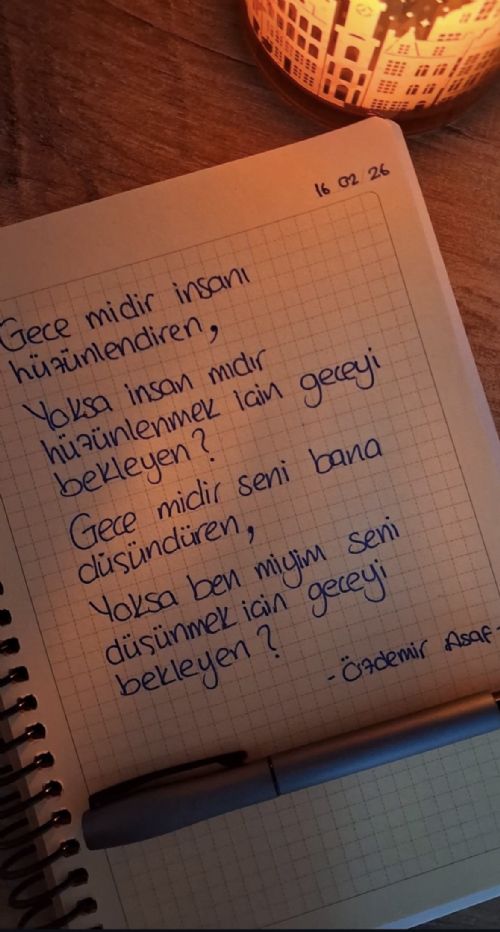 16 02 26
Gece midir insanı
hüzünlendiren,
Yoksa insan mıdır
hüzünlenmek için geceyi
bekleyen?
Gece midir seni bana
düşündüren,
Yoksa ben miyim seni
düşünmek için geceyi
bekleyen?
- Özdemir Asaf -